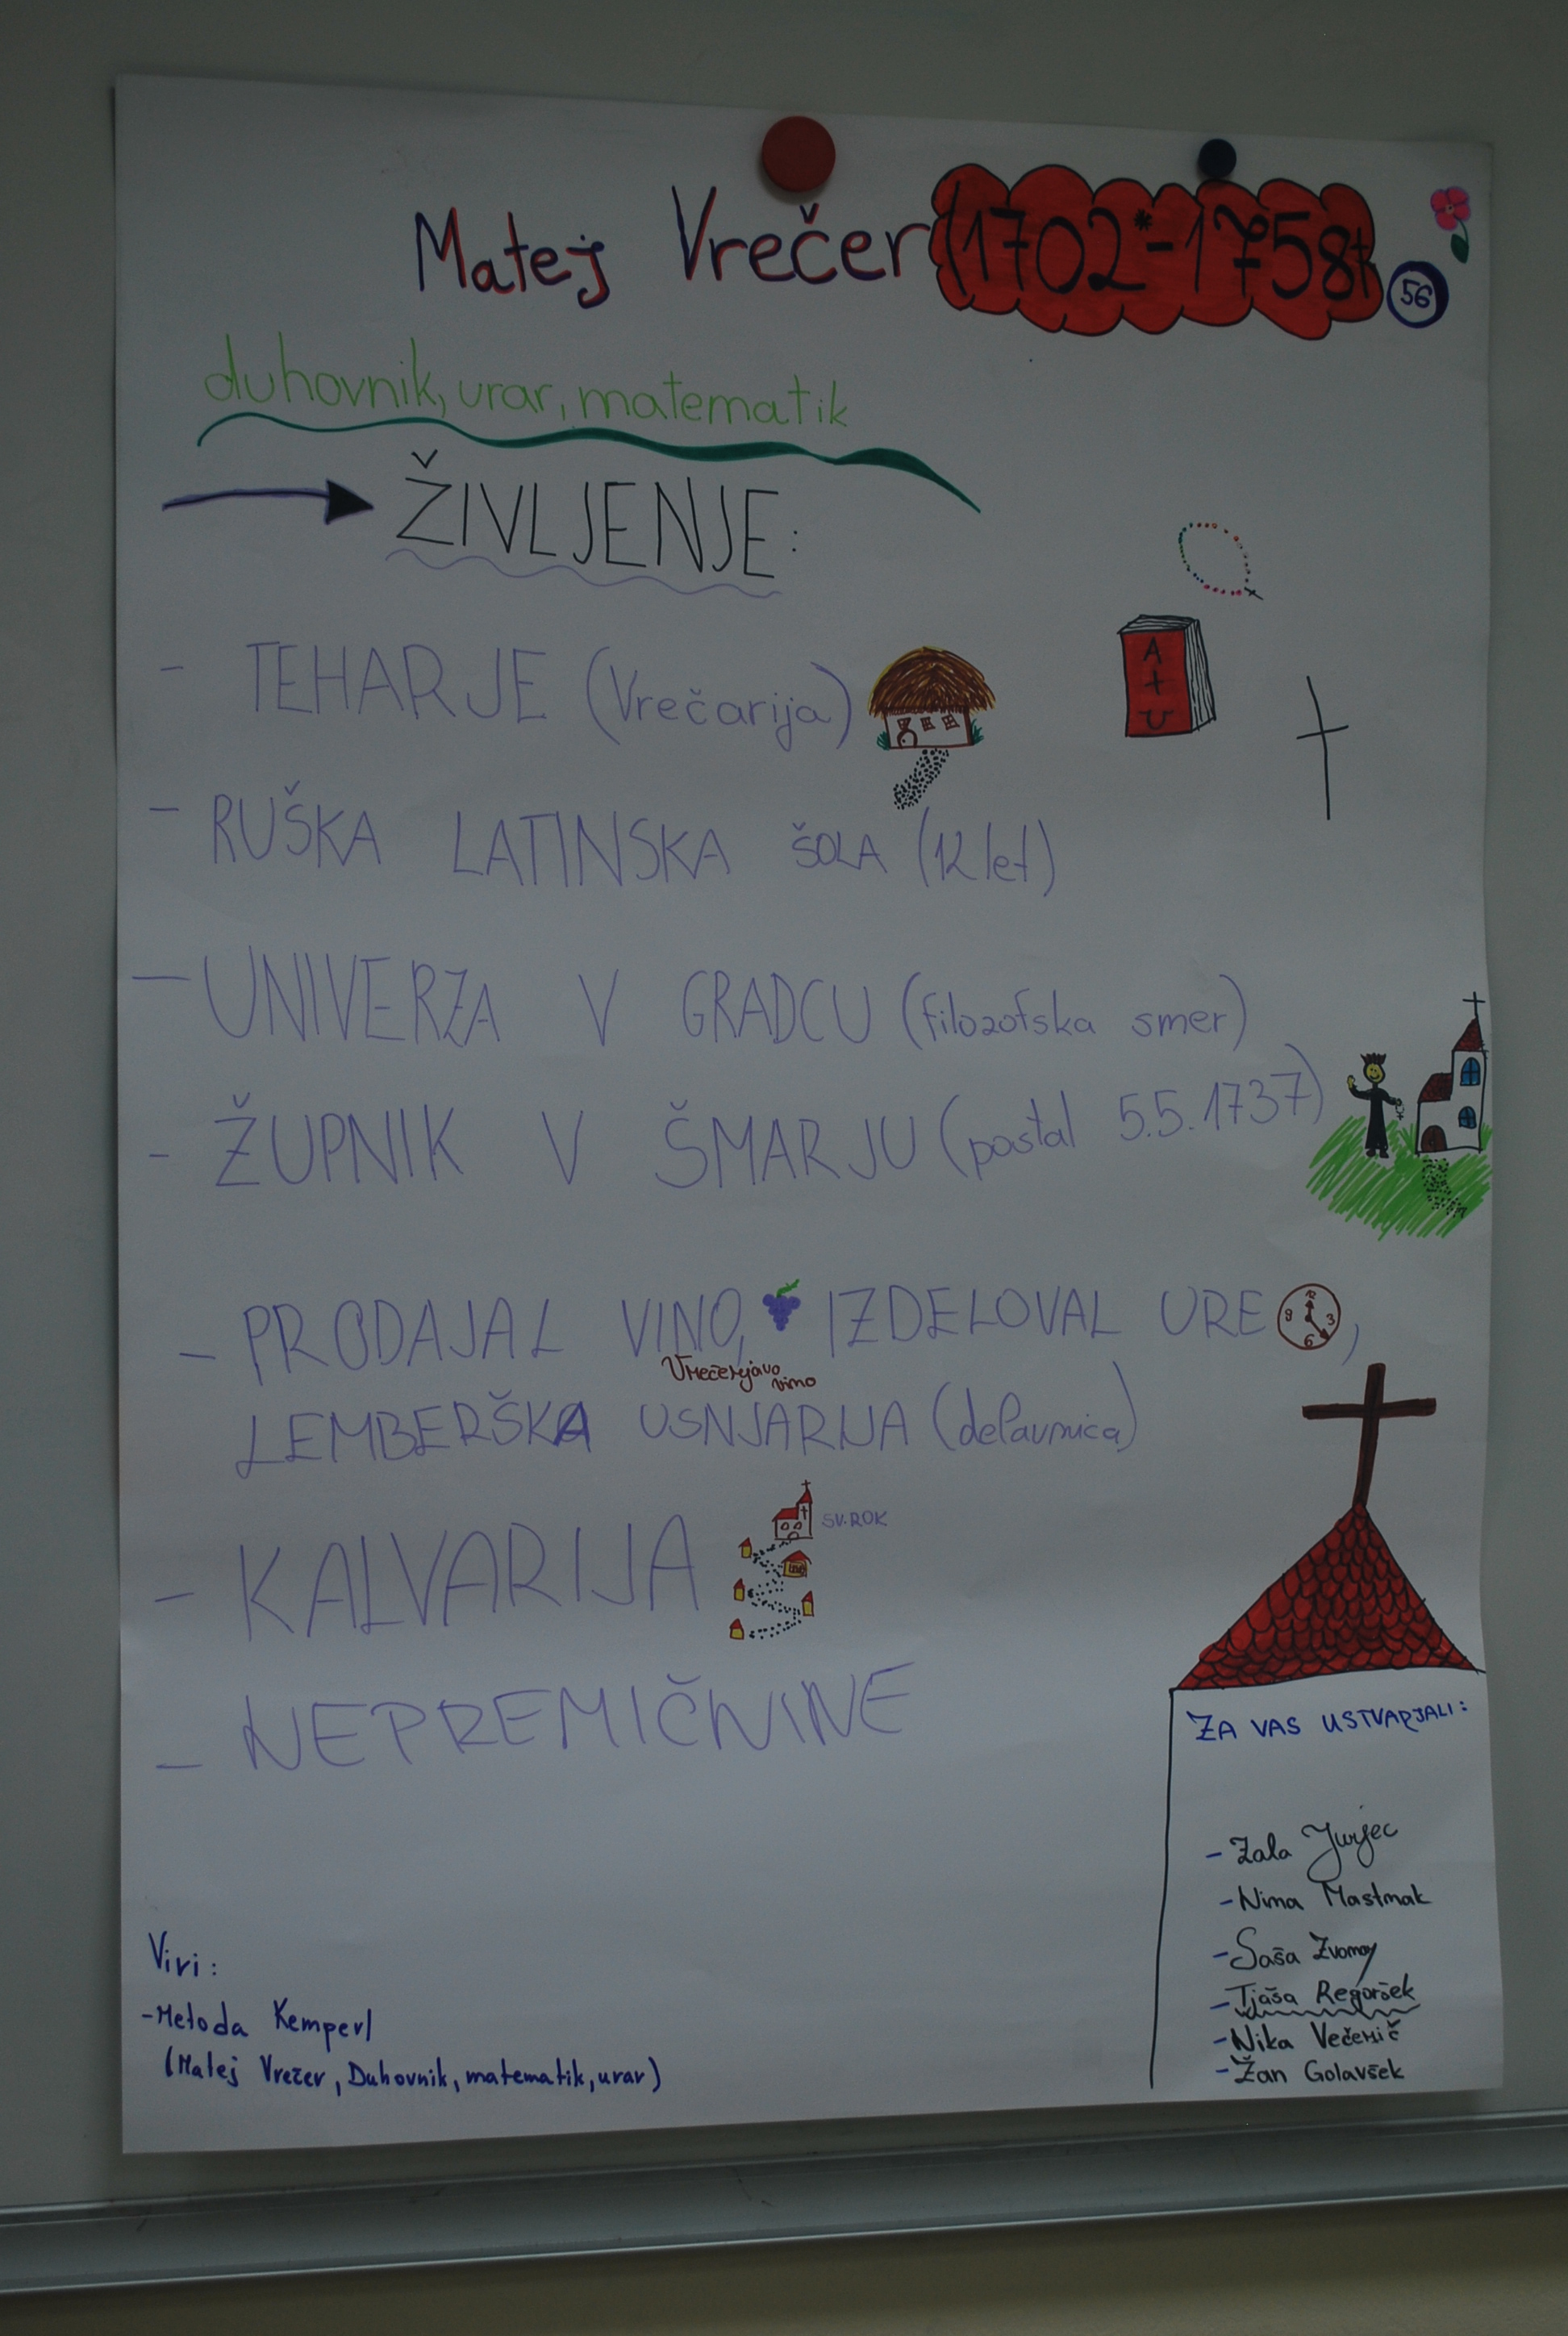 Matej Vrečer (1702*-1758†
56
duhovnik, urar, matematik
ŽIVLJENJE:
- TEHARJE (Vrečarija)
A
+
U
- RUŠKA LATINSKA ŠOLA (12 let)
- UNIVERZA V GRADCU (filozofska smer)
- ŽUPNIK V ŠMARJU (postal 5.5.1737)
- PRODAJAL VINO, IZDELOVAL URE,
12
9 3
6
Vrečerjavo
vino
LEMBERŠKA USNJARIJA (delavnica)
- KALVARIJA
SV. ROK
- NEPREMIČNINE
ZA VAS USTVARJALI:
- Zala Jurjec
- Nina Mastnak
- Saša
- Tjaša Regoršek
- Nika Večerič
- Žan Golavšek
Viri:
- Metoda Kemperl
(Matej Vrečer, Duhovnik, matematik, urar)